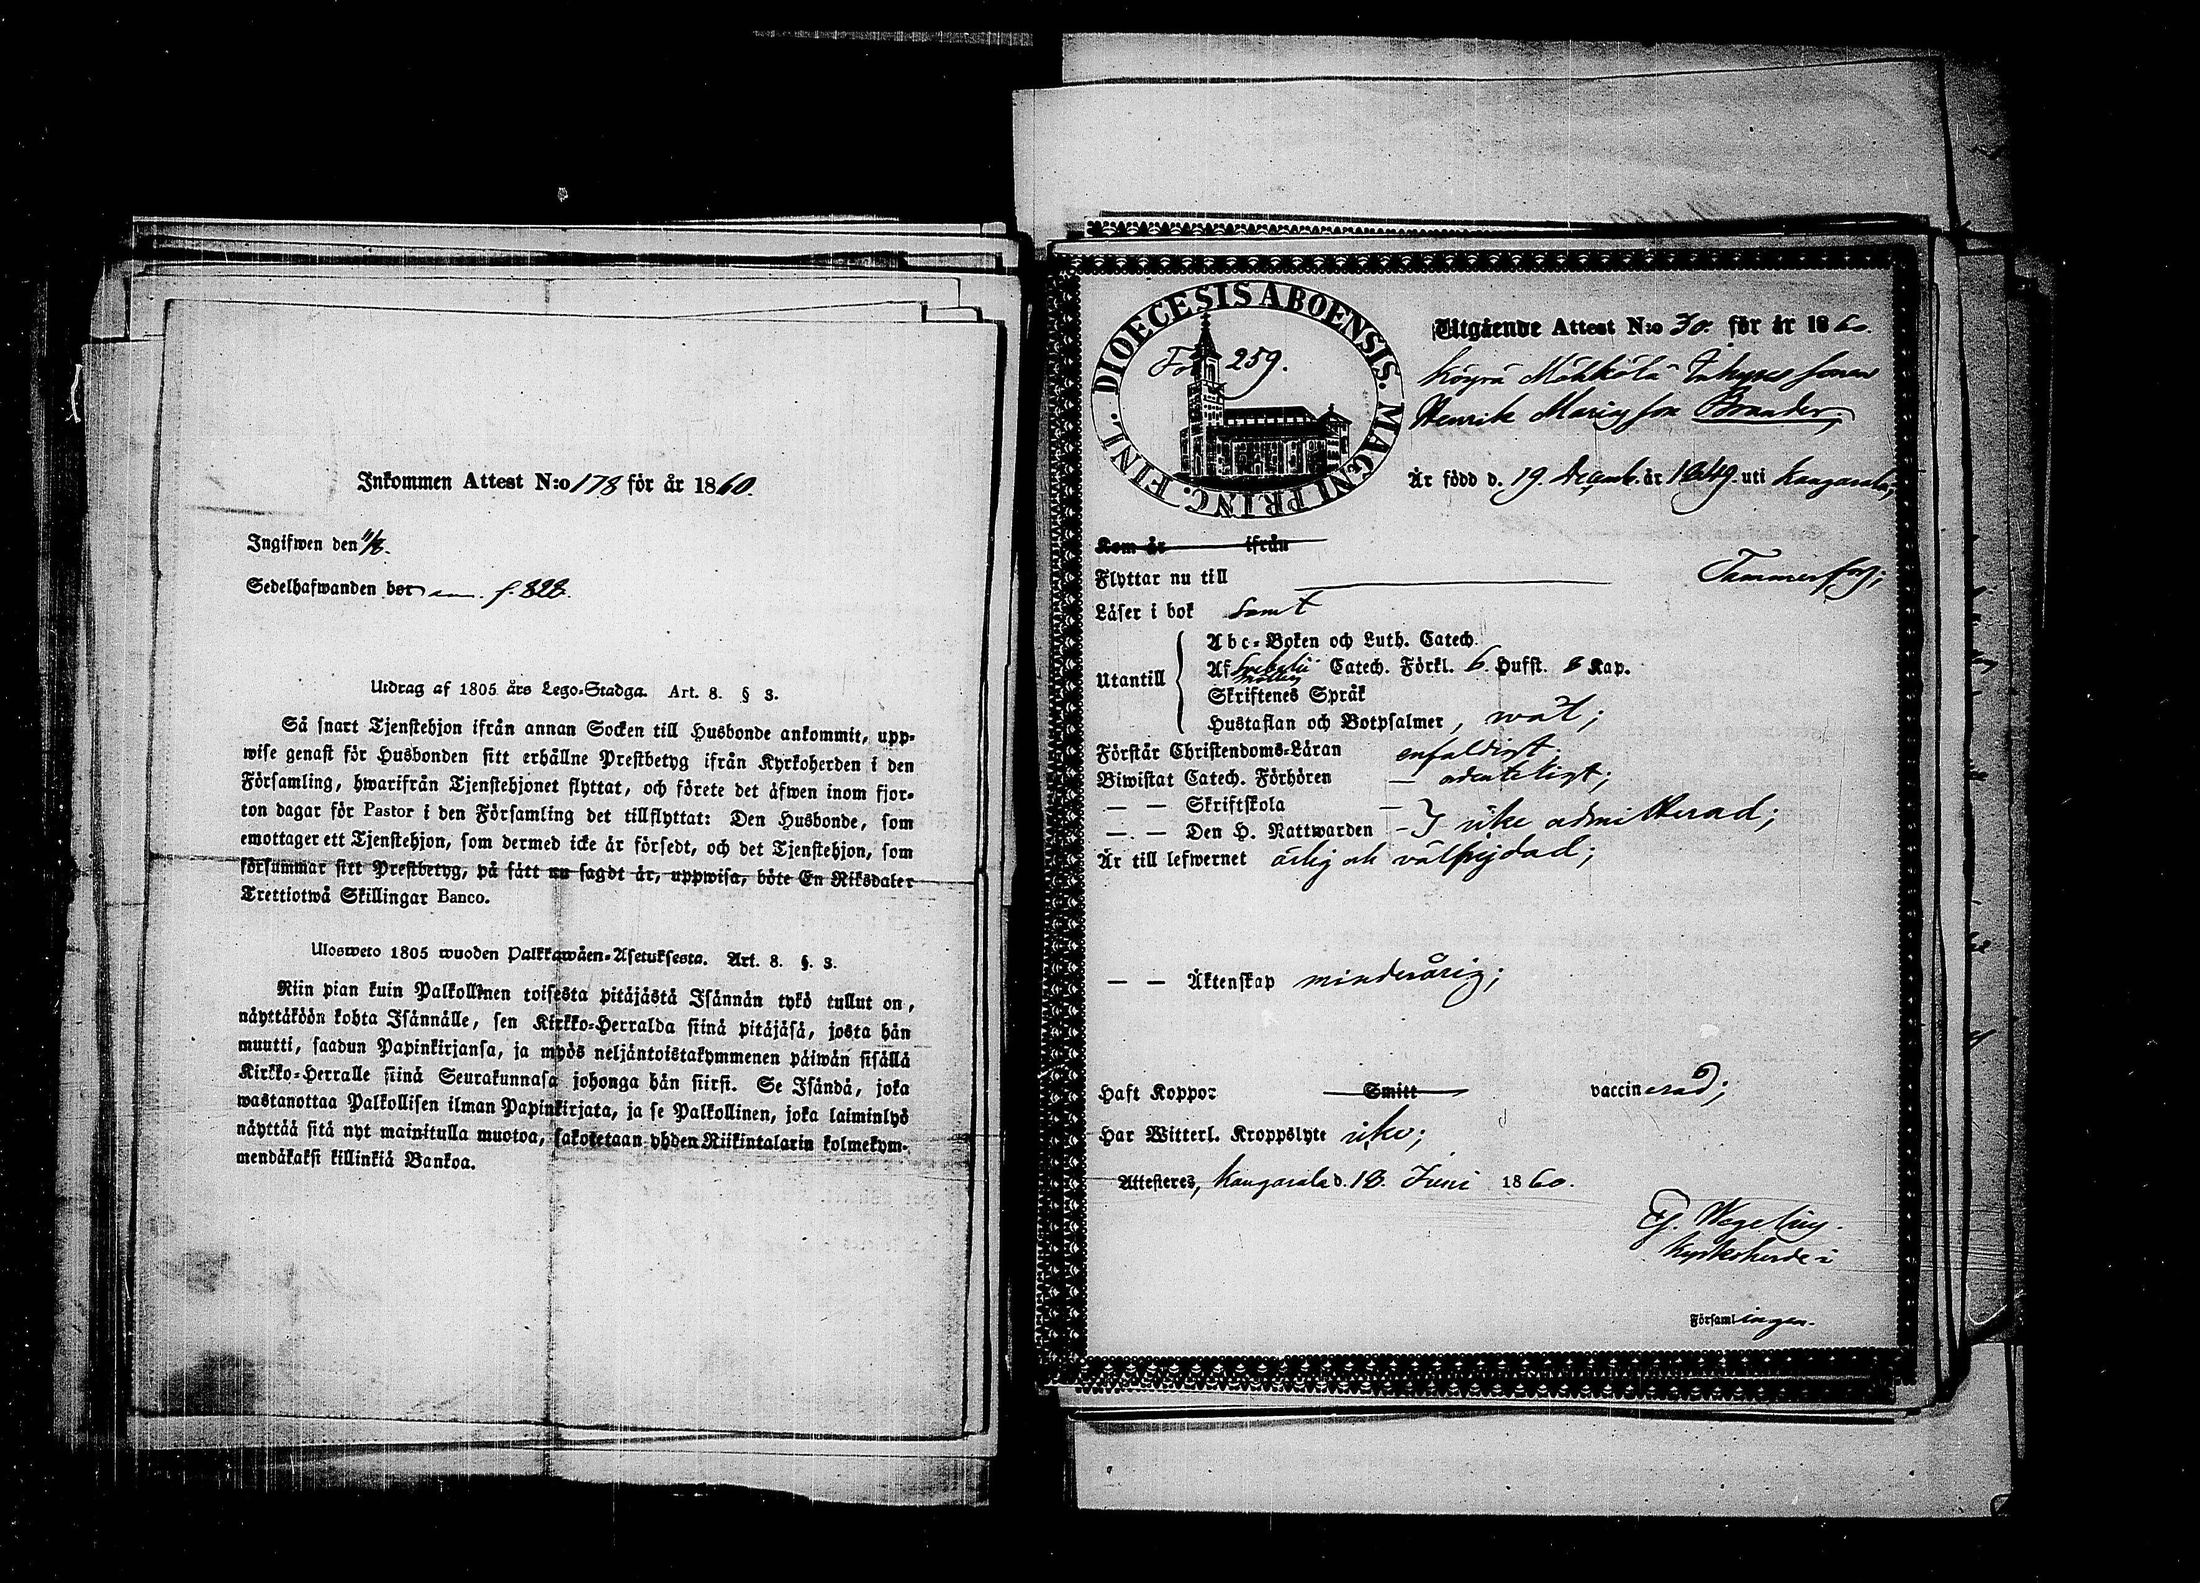 Inkommen Attest N:o 178 för år 1860.
Ingifwen den 11/8.
Sedelhafwanden bor f. 828.
Utdrag af 1805 års Lego-Stadga. Art. 8. § 3.
Så snart Tjenstehjon ifrån annan Socken till Husbonde ankommit, upp-
wise genast för Husbonden sitt erhållne Prestbetyg ifrån Kyrkoherden i den
Församling, hwarifrån Tjenstehjonet flyttat, och förete det äfwen inom fjor-
ton dagar för Pastor i den Församling det tillflyttat: Den Husbonde, som
emottager ett Tjenstehjon, som dermed icke är försedt, och det Tjenstehjon, som
försummar sitt Prestbetyg, på sätt nu sagdt är, uppwisa, böte En Riksdaler
Trettiotwå Skillingar Banco.
Ulosweto 1805 wuoden Palkkawäen-Asetuksesta. Art. 8. §. 3.
Niin pian kuin Palkollinen toisesta pitäjästä Isännän tykö tullut on,
näyttäköön kohta Isännälle, sen Kirkko-Herralda siinä pitäjäsä, josta hän
muutti, saadun Papinkirjansa, ja myös neljäntoistakymmenen päiwän sisällä
Kirkko-Herralle siinä Seurakunnasa johonga hän siirsi. Se Isändä, joka
wastanottaa Palkollisen ilman Papinkirjata, ja se Palkollinen, joka laiminlyö
näyttää sitä nyt mainitulla muotoa, sakotetaan yhden Riikintalarin kolmekym-
mendäkaksi killinkiä Bankoa.
DIOECESIS ABOENSIS. MAGNI PRINC. FINL.
Fol 259.
Utgående Attest N:o 30. för år 1860.
Henrik Mariæ son Brander,
Är född d. 19. Decemb. år 1849. uti Kangasala,
Kom år ifrån
Flyttar nu till Tammerfors;
Läser i bok samt
Utantill
Abc-Boken och Luth. Catech.
Af Svebelii Catech. Förkl. 6. Hufst. 8 Kap.
Möllers
Skriftenes Språk
Hustaflan och Botpsalmer, wäl;
Förstår Christendoms-Läran enfaldigt.
Biwistat Catech. Förhören — ordenteligt;
— — Skriftskola —
— — Den H. Nattwarden — icke admitterad;
Är till lefwernet ärlig och välfrejdad;
— — Äktenskap minderårig;
Haft Koppor Smitt vaccinerad;
Har Witterl. Kroppslyte icke;
Attesteres, Kangasala d. 18. Juni 1860.
Wegelius.
Kyrkoherde i
Församlingen.